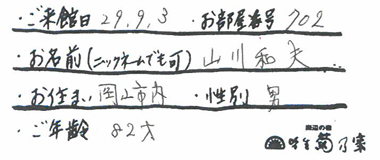 ・ご来館日 29.9.3 ・お部屋番号 702
・お名前(ニックネームでも可) 山川和夫
・お住まい 岡山市内 ・性別 男
・ご年齢 82才
海辺の宿